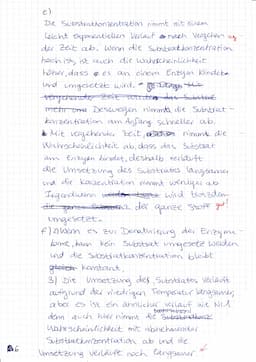 e)
Die Substratkonzentration nimmt mit einem
leicht exponentiellen Verlauf nach
der Zeit ab. Wenn die Substratkonzentration
hoch ist, ist auch die Wahrscheinlichkeit
höher, dass es an einem Enzym bindet
und umgesetzt wird.
Deswegen nimmt die Substrat-
konzentration am Anfang schneller ab.
Mit vergehender Zeit, nimmt die
Wahrscheinlichkeit ab, dass das Substrat
am Enzym bindet, deshalb verläuft
die Umsetzung des Substrates langsamer
und die Konzentration nimmt weniger ab
Irgendwann wird trotzdem
der ganze Stoff gut!
umgesetzt.
f) 2) Wenn es zur Denaturierung der Enzyme
kam, kann kein Substrat umgesetzt werden
und die Substratkonzentration bleibt
konstant.
3) Die Umsetzung des Substrates verläuft
aufgrund der niedrigen Temperatur langsamer,
aber es ist ein ähnlicher Verlauf wie Nr.1
denn auch hier nimmt die
Wahrscheinlichkeit mit abnehmender
Substratkonzentration ab und die
Umsetzung verläuft noch langsamer